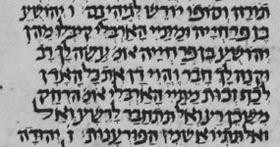 תורה וסופו יורש לגיהנם : ו יהושע
בן פרחייה ומתיי הארבלי קיבלו מהן
יהושע בן פרחייה אומ' עשה לך רב
וקנה לך חבר והוי דן את כל האדם
לכף זכות מתיי הארבלי אומ' הרחק
משכן רע ואל תתחבר לרשע ואל
ואל תתייאש מן הפורענות : ז יהודה